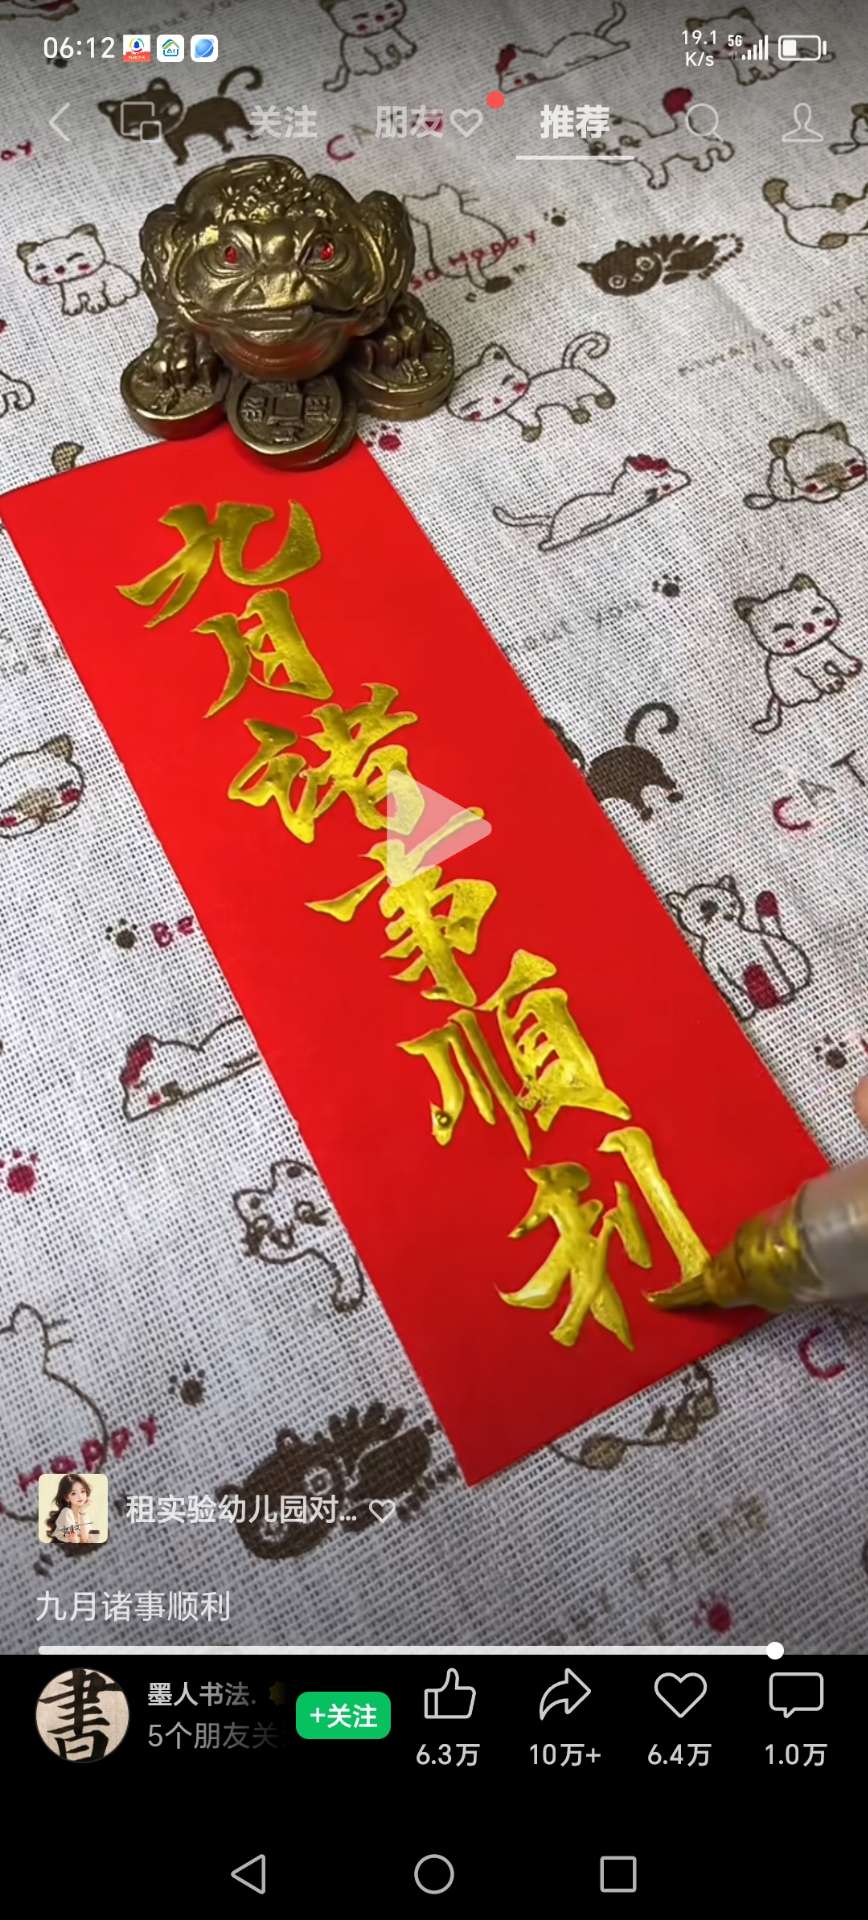 06:12
19.1 K/s
5G
关注
朋友
推荐
SO HAPPY
九月诸事顺利
CAT
BE
HAPPY
租实验幼儿园对...
九月诸事顺利
書
墨人书法.
5个朋友关
+关注
6.3万
10万+
6.4万
1.0万